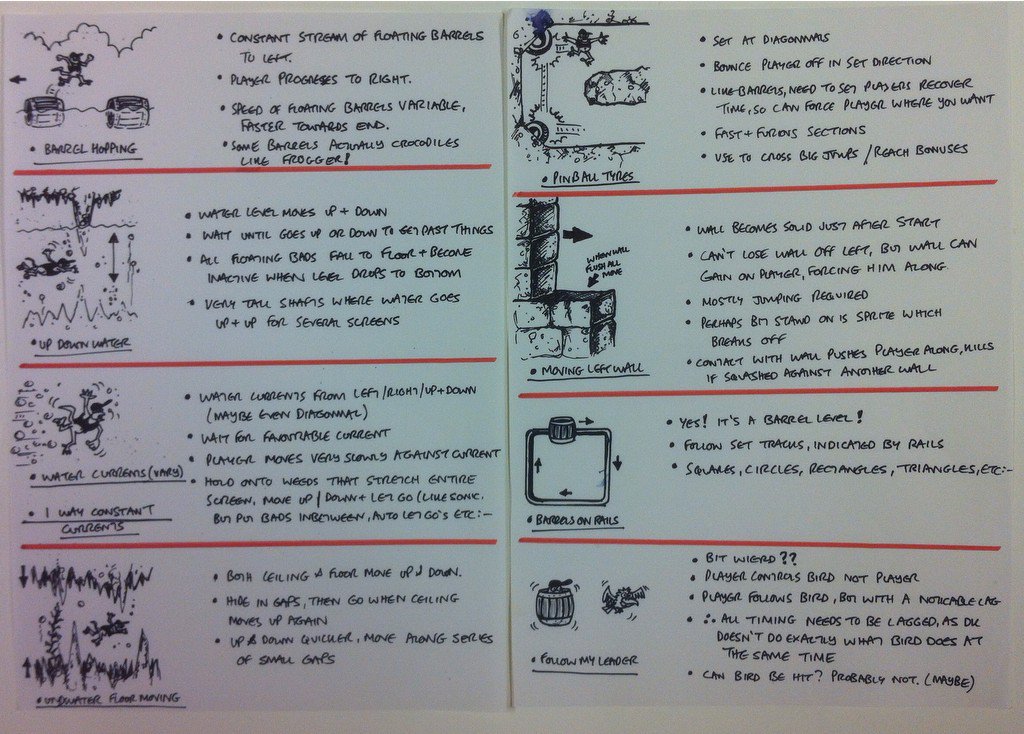 • CONSTANT STREAM OF FLOATING BARRELS
TO LEFT.
• PLAYER PROGRESES TO RIGHT.
• SPEED OF FLOATING BARRELS VARIABLE,
FASTER TOWARDS END.
• SOME BARRELS ACTUALLY CROCODILES
LIKE FROGGER!
• BARREL HOPPING
• WATER LEVEL MOVES UP + DOWN
• WAIT UNTIL GOES UP OR DOWN TO GET PAST THINGS
• ALL FLOATING BADS FALL TO FLOOR + BECOME
INACTIVE WHEN LEVEL DROPS TO BOTTOM
• VERY TALL SHAFTS WHERE WATER GOES
UP + UP FOR SEVERAL SCREENS
• UP DOWN WATER
• WATER CURRENTS FROM LEFT/RIGHT/UP+DOWN
(MAYBE EVEN DIAGONNAL)
• WAIT FOR FAVOURABLE CURRENT
• PLAYER MOVES VERY SLOWLY AGAINST CURRENT
• HOLD ONTO WEEDS THAT STRETCH ENTIRE
SCREEN, MOVE UP/DOWN + LET GO (LIKE SONIC.
BUT PUT BADS INBETWEEN, AUTO LET GO'S ETC:-
• WATER CURRENTS (VARY)
• 1 WAY CONSTANT
CURRENTS
• BOTH CEILING & FLOOR MOVE UP & DOWN.
• HIDE IN GAPS, THEN GO WHEN CEILING
MOVES UP AGAIN
• UP & DOWN QUICKER, MOVE ALONG SERIES
OF SMALL GAPS
• UNDWATER FLOOR MOVING
• SET AT DIAGONNALS
• BOUNCE PLAYER OFF IN SET DIRECTION
• LIKE BARRELS, NEED TO SET PLAYERS RECOVER
TIME, SO CAN FORCE PLAYER WHERE YOU WANT
• FAST + FURIOUS SECTIONS
• USE TO CROSS BIG JUMPS / REACH BONUSES
• PINBALL TYRES
• WALL BECOMES SOLID JUST AFTER START
• CAN'T LOSE WALL OFF LEFT, BUT WALL CAN
GAIN ON PLAYER, FORCING HIM ALONG.
• MOSTLY JUMPING REQUIRED
• PERHAPS BIT STAND ON IS SPRITE WHICH
BREAKS OFF
• CONTACT WITH WALL PUSHES PLAYER ALONG, KILLS
IF SQUASHED AGAINST ANOTHER WALL
WHEN WALL
FLUSH ALL
MOVE
• MOVING LEFT WALL
• YES! IT'S A BARREL LEVEL!
• FOLLOW SET TRACKS, INDICATED BY RAILS
• SQUARES, CIRCLES, RECTANGLES, TRIANGLES, ETC:-
• BARRELS ON RAILS
• BIT WIERD??
• PLAYER CONTROLS BIRD NOT PLAYER
• PLAYER FOLLOWS BIRD, BUT WITH A NOTICABLE LAG
• ∴ ALL TIMING NEEDS TO BE LAGGED, AS DK
DOESN'T DO EXACTLY WHAT BIRD DOES AT
THE SAME TIME
• CAN BIRD BE HIT? PROBABLY NOT. (MAYBE)
• FOLLOW MY LEADER